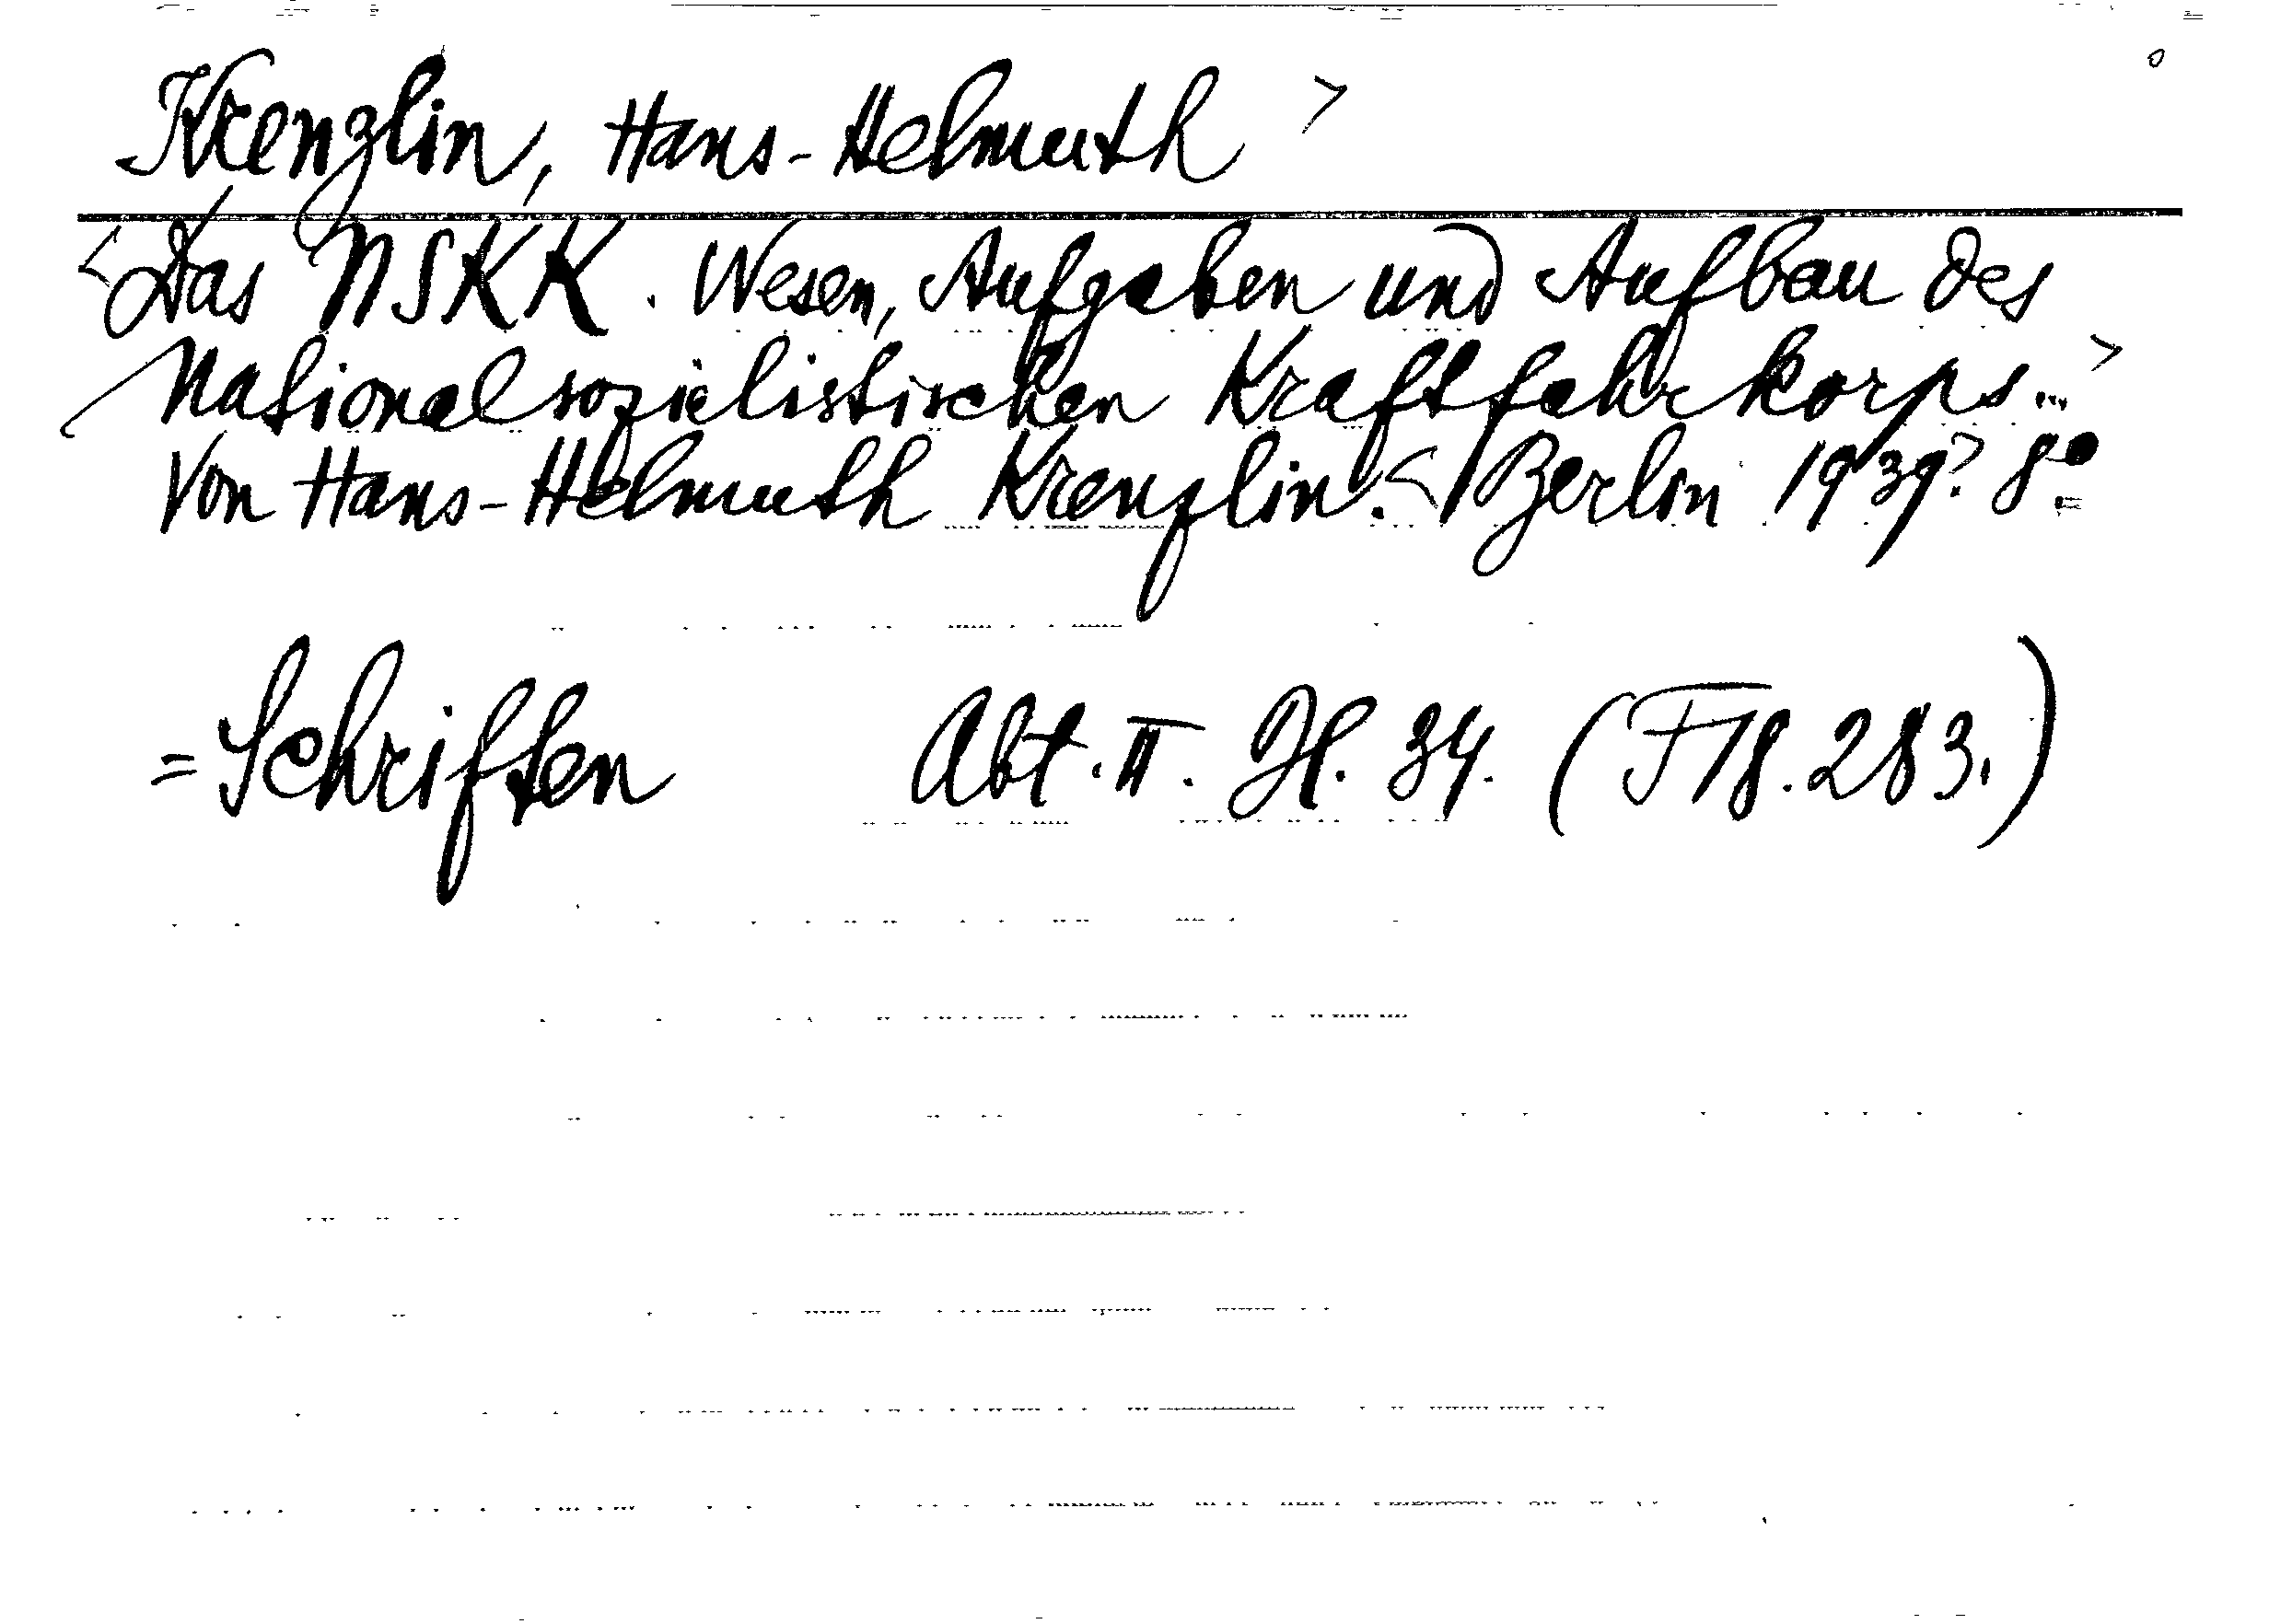 Krenzlin, Hans-Helmuth >
<Das NSKK. Wesen, Aufgaben und Aufbau des
Nationalsozialistischen Kraftfahrkorps...>
Von Hans-Helmuth Krenzlin. <Berlin 1939> 8°
=Schriften Abt. II. H. 34. (F18.283.)